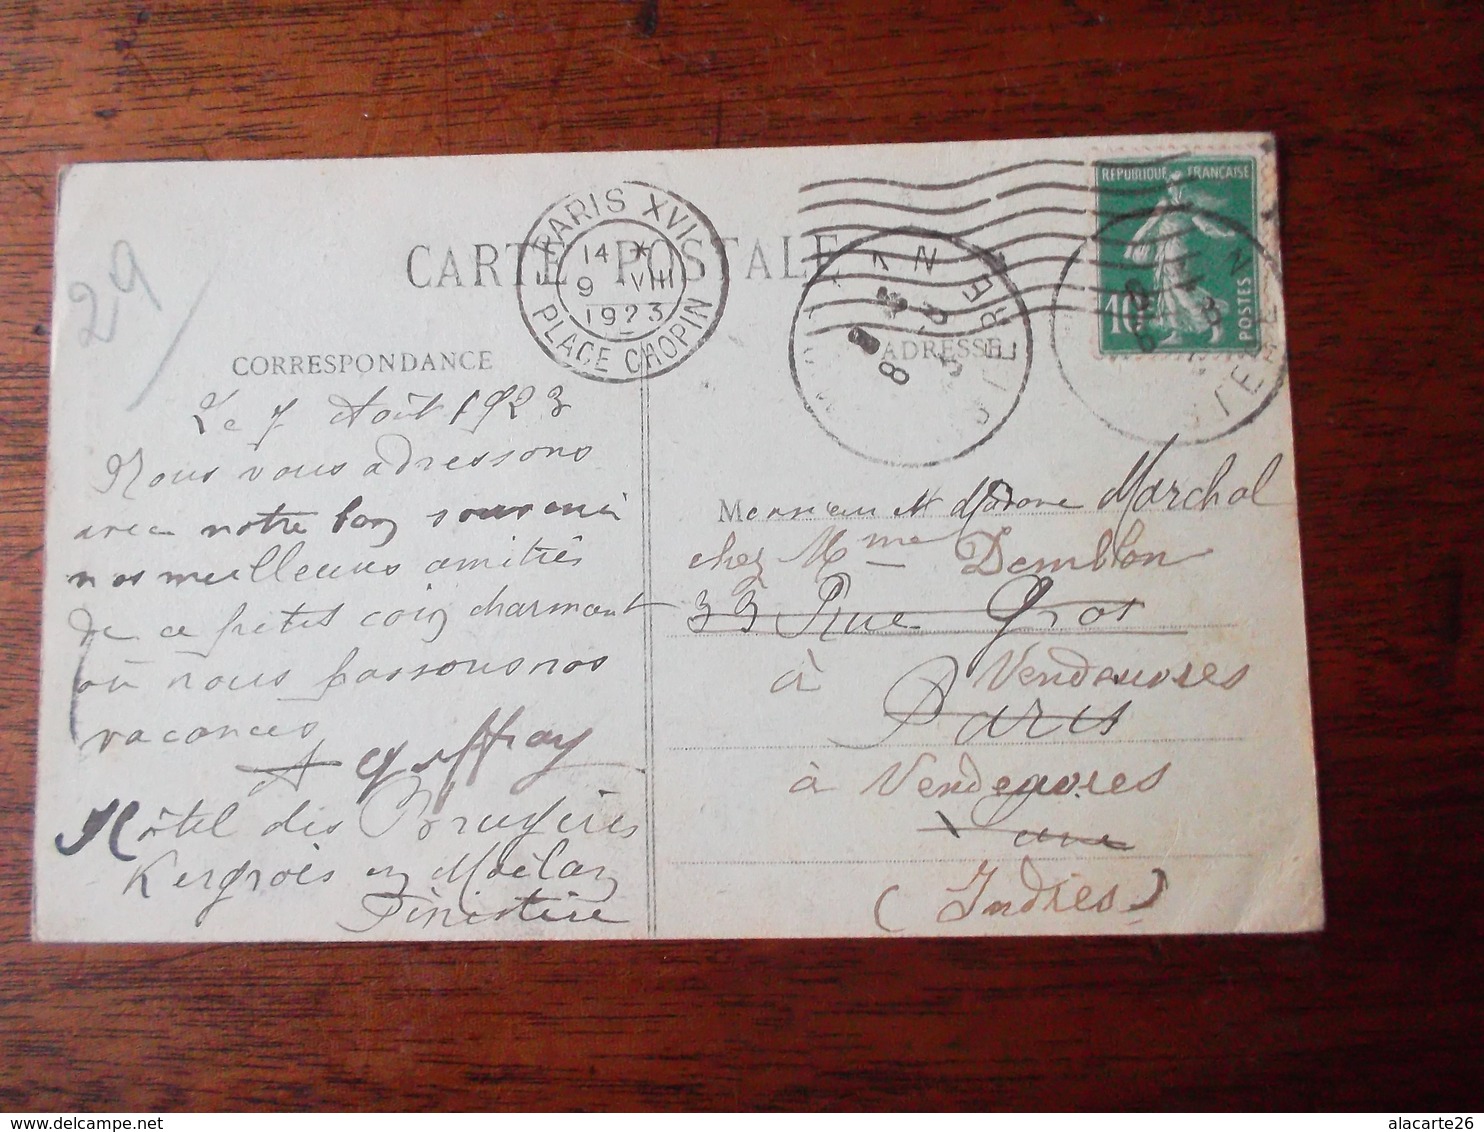 29
CARTE POSTALE
PARIS XVI
14 *
9 VIII
1923
PLACE CHOPIN
RÉPUBLIQUE FRANÇAISE
10
POSTES
CORRESPONDANCE
ADRESSE
Le 7 Août 1923
Nous vous adressons
avec notre bon souvenir
nos meilleures amitiés
De ce petit coin charmant
où nous passons nos
vacances
A Geffray
Hôtel des Bruyères
Kergroës en Moëlan
Finistère
Monsieur et Madame Marchal
chez Mme Demblon
33 Rue Gros
à Vendeuvres
Paris
à Vendeuvres
(Indres)
alacarte26